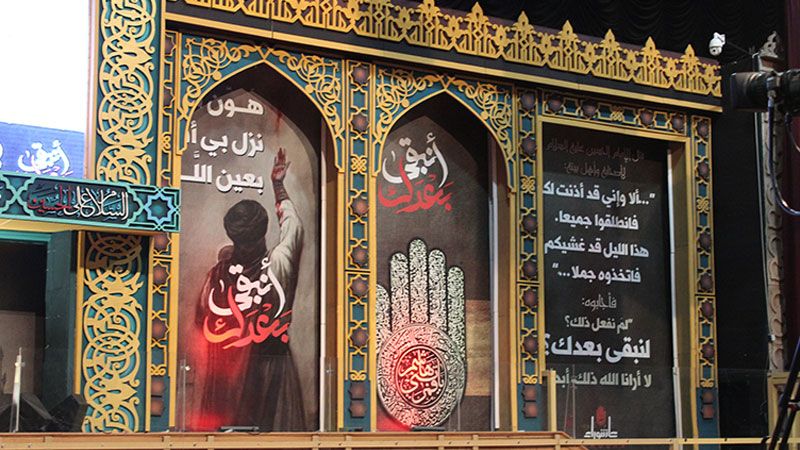 أنبقى
السلام على الحسين
هَوّنَ
نزل بي أ
بعين اللّ
أنبقى
بعدك
أنبقى
بعدك
قال الإمام الحسين عليه السلام
لأصحابه وأهل بيته:
"...ألا وإني قد أذنت لك
فانطلقوا جميعا.
هذا الليل قد غشيكم
فاتخذوه جملا..."
فأجابوه:
"لمَ نفعل ذلك؟
لنبقى بعدك؟
لا أرانا الله ذلك أبد
عاشوراء